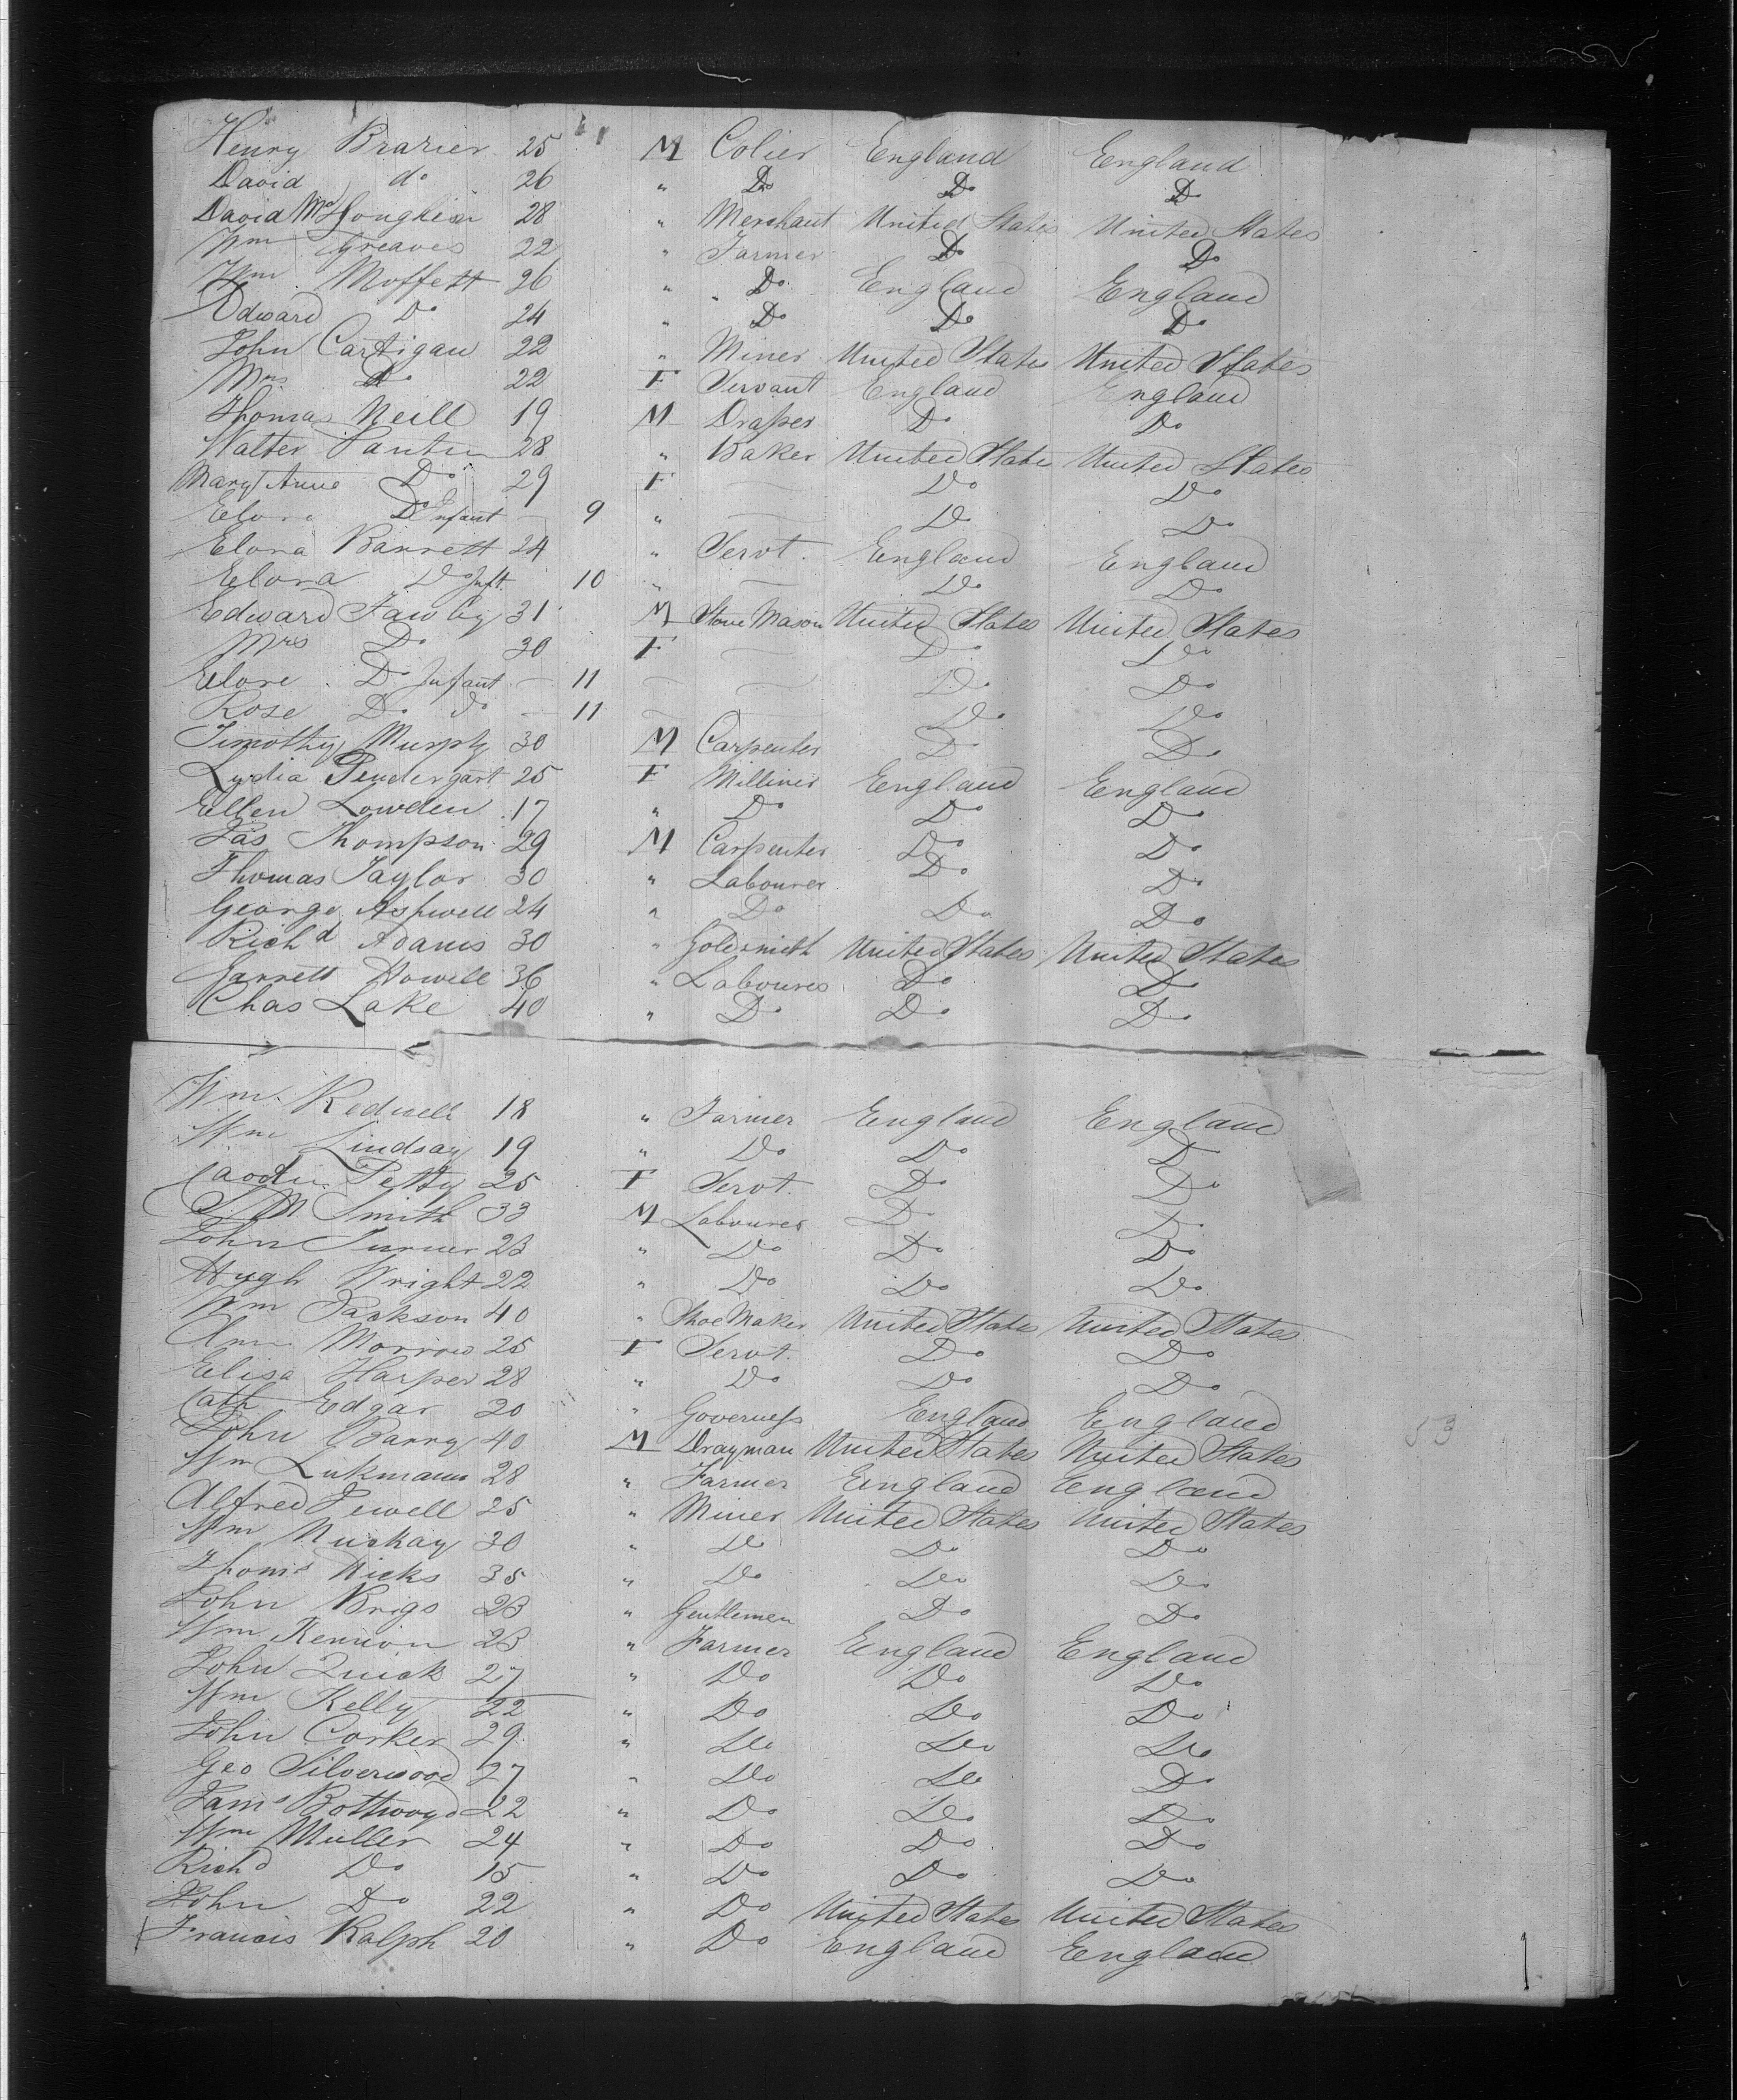 Henry Brazier 25 M Colier England England
David do 26 " Do Do Do
David McLoughlin 28 " Merchant United States United States
Wm Greaves 22 " Farmer Do Do
Wm Moffett 26 " Do England England
Edward Do 24 " Do Do Do
John Cartigan 22 " Miner United States United States
Mrs Do 22 F Servant England England
Thomas Neill 19 M Draper Do Do
Walter 28 " Baker United State United States
Mary Anne Do 29 F — Do Do
Do Enfant — 9 " — Do Do
Elora Barrett 24 " Servt. England England
Elora Do Inft. 10 " — Do Do
Edward Fawley 31 M Stone Mason United States United States
Mrs Do 30 F — Do Do
Elore Do Infant — 11 — — Do Do
Rose Do do — 11 — Do Do
Timothy Murphy 30 M Carpenter Do Do
Lydia Pendergart 25 F Milliner England England
Ellen Lowden 17 " Do Do Do
Jas Thompson 29 M Carpenter Do Do
Thomas Taylor 30 " Labourer Do Do
George Ashwell 24 " Do Do Do
Richd Adams 30 " Goldsmith United States United States
Garrett Howell 36 " Labourer Do Do
Chas Lake 40 " Do Do Do
Wm Redwell 18 " Farmer England England
Wm Lindsay 19 " Do Do Do
Petty 25 F Servt. Do Do
M Smith 33 M Labourer Do Do
John Turner 23 " Do Do Do
Hugh Wright 22 " Do Do Do
Wm Jackson 40 " Shoe Maker United States United States
Ann Morrow 25 F Servt. Do Do
Elisa Harper 28 " Do Do Do
Cath Edgar 20 " Governess England England
John Barry 40 M Drayman United States United States
Wm Lukmann 28 " Farmer England England
Alfred Jewell 25 " Miner United States United States
Wm Muckay 30 " Do Do Do
Thoms Hicks 35 " Do Do Do
John Brigs 23 " Gentlemen Do Do
Wm Kennion 23 " Farmer England England
John Quick 27 " Do Do Do
Wm Kelly 22 " Do Do Do
John Corker 29 " Do Do Do
Geo Silverwood 27 " Do Do Do
Jams 22 " Do Do Do
Wm Muller 24 " Do Do Do
Richd Do 15 " Do Do Do
John Do 22 " Do United States United States
Francis Ralph 20 " Do England England
53